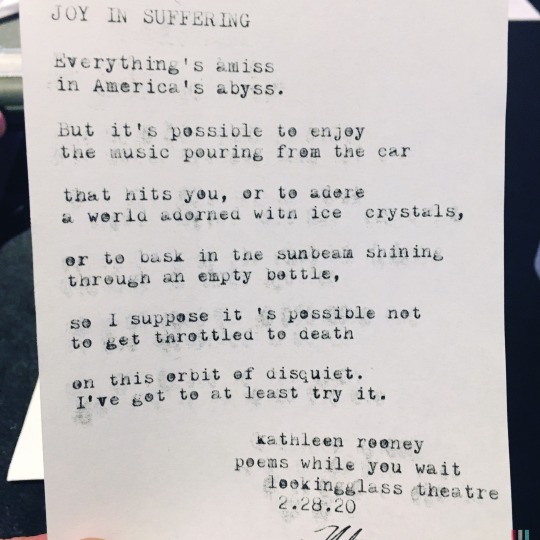 JOY IN SUFFERING
Everything's amiss
in America's abyss.
But it's possible to enjoy
the music pouring from the car
that hits you, or to adore
a world adorned with ice crystals,
or to bask in the sunbeam shining
through an empty bottle,
so I suppose it 's possible not
to get throttled to death
on this orbit of disquiet.
I've got to at least try it.
kathleen rooney
poems while you wait
lookingglass theatre
2.28.20